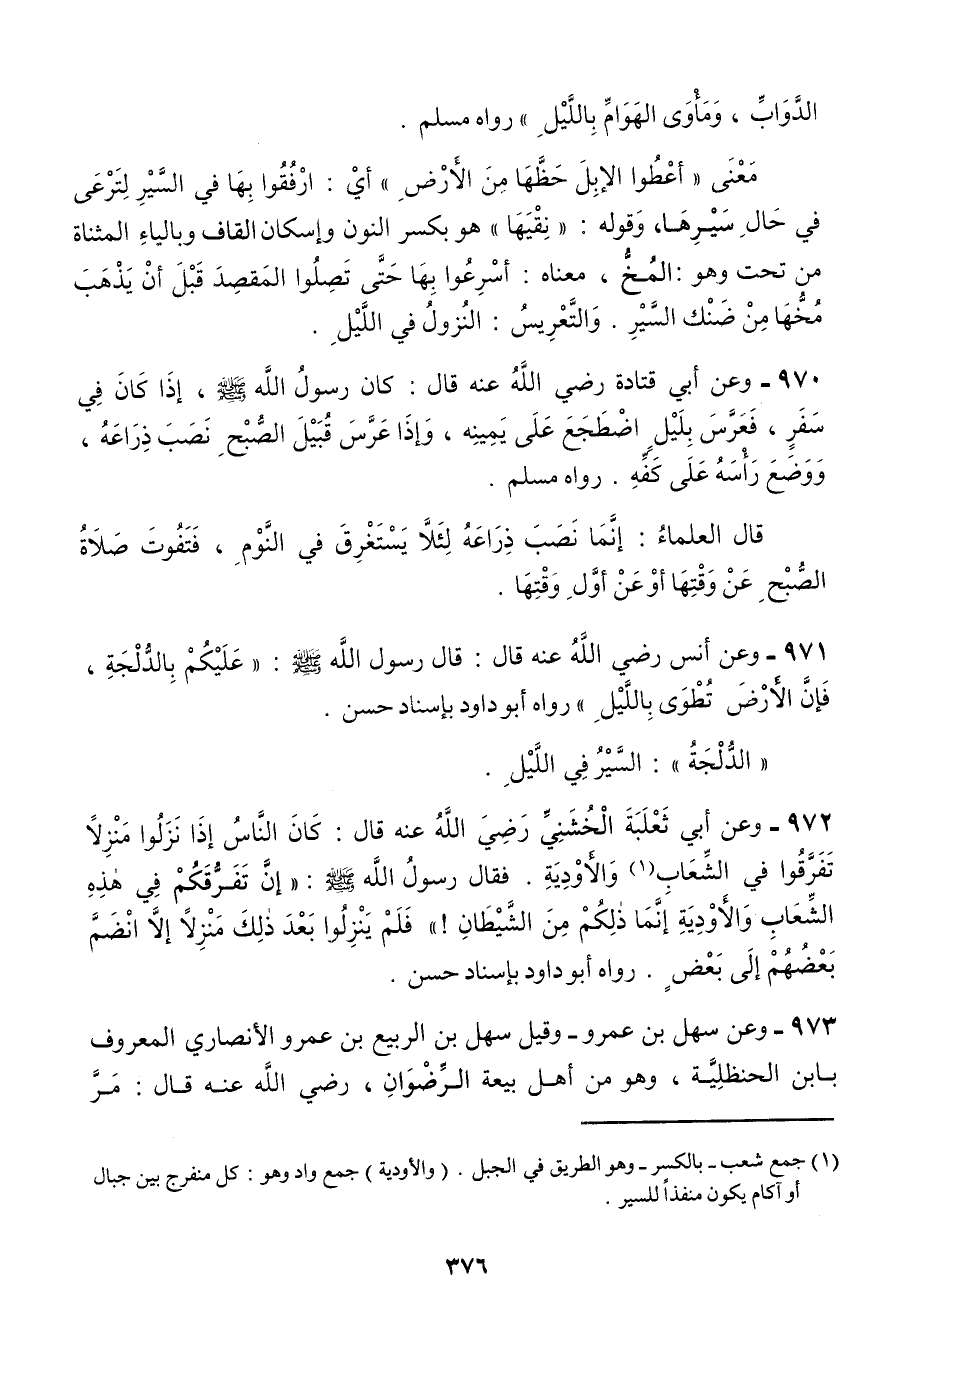 الدَّوَابِّ ، وَمَأْوَى الهَوَامِّ بِاللَّيْلِ » رواه مسلم .
مَعْنَى « أعْطُوا الإبِلَ حَظَّهَا مِنَ الأَرْضِ » أيْ : ارْفُقُوا بِهَا في السَّيْرِ لِتَرْعَى
في حَالِ سَيْرِهَا، وَقوله : « نِقْيَهَا » هو بكسر النون وإسكان القاف وبالياءِ المثناة
من تحت وهو : المُخُّ ، معناه : أسْرِعُوا بِهَا حَتَّى تَصِلُوا المَقصِدَ قَبْلَ أنْ يَذْهَبَ
مُخُّهَا مِنْ ضَنْك السَّيْرِ . وَالتَّعْرِيسُ : النُزولُ في اللَّيْلِ .
٩٧٠ ـ وعن أبي قتادة رضي اللَّهُ عنه قال : كان رسولُ اللَّه ﷺ ، إذَا كَانَ فِي
سَفَرٍ ، فَعَرَّسَ بِلَيْلٍ اضْطَجَعَ عَلَى يَمِينِه ، وَإذَا عَرَّسَ قُبَيْلَ الصُّبْحِ نَصَبَ ذِرَاعَهُ ،
وَوَضَعَ رَأْسَهُ عَلَى كَفِّهِ . رواه مسلم .
قال العلماءُ : إنَّمَا نَصَبَ ذِرَاعَهُ لِئَلَّا يَسْتَغْرِقَ في النَّوْمِ ، فَتَفُوتَ صَلَاةُ
الصُّبْحِ عَنْ وَقْتِهَا أوْ عَنْ أوَّلِ وَقْتِهَا .
٩٧١ ـ وعن أنس رضي اللَّهُ عنه قال : قال رسول اللَّه ﷺ : « عَلَيْكُمْ بِالدُّلْجَةِ ،
فَإنَّ الأَرْضَ تُطْوَى بِاللَّيْلِ » رواه أبو داود بإسناد حسن .
« الدُّلْجَةُ » : السَّيْرُ فِي اللَّيْلِ .
٩٧٢ ـ وعن أبي ثَعْلَبَةَ الْخُشَنِيِّ رَضِيَ اللَّهُ عنه قال : كَانَ النَّاسُ إذَا نَزَلُوا مَنْزِلاً
تَفَرَّقُوا في الشِّعَابِ(١) وَالأَوْدِيَةِ . فقال رسولُ اللَّه ﷺ : « إنَّ تَفَرُّقَكُمْ فِي هٰذِهِ
الشِّعَابِ وَالأَوْدِيَةِ إنَّمَا ذٰلِكُمْ مِنَ الشَّيْطَانِ ! » فَلَمْ يَنْزِلُوا بَعْدَ ذٰلِكَ مَنْزِلاً إلَّا انْضَمَّ
بَعْضُهُمْ إلَى بَعْضٍ . رواه أبو داود بإسناد حسن .
٩٧٣ ـ وعن سهل بن عمرو ـ وقيل سهل بن الربيع بن عمرو الأنصاري المعروف
بابن الحنظلِيَّة ، وهو من أهل بيعة الرِّضْوَانِ ، رضي اللَّه عنه قال : مَرَّ
(١) جمع شعب ـ بالكسر ـ وهو الطريق في الجبل . ( والأودية ) جمع واد وهو : كل منفرج بين جبال
أو آكام يكون منفذاً للسير .
٣٧٦